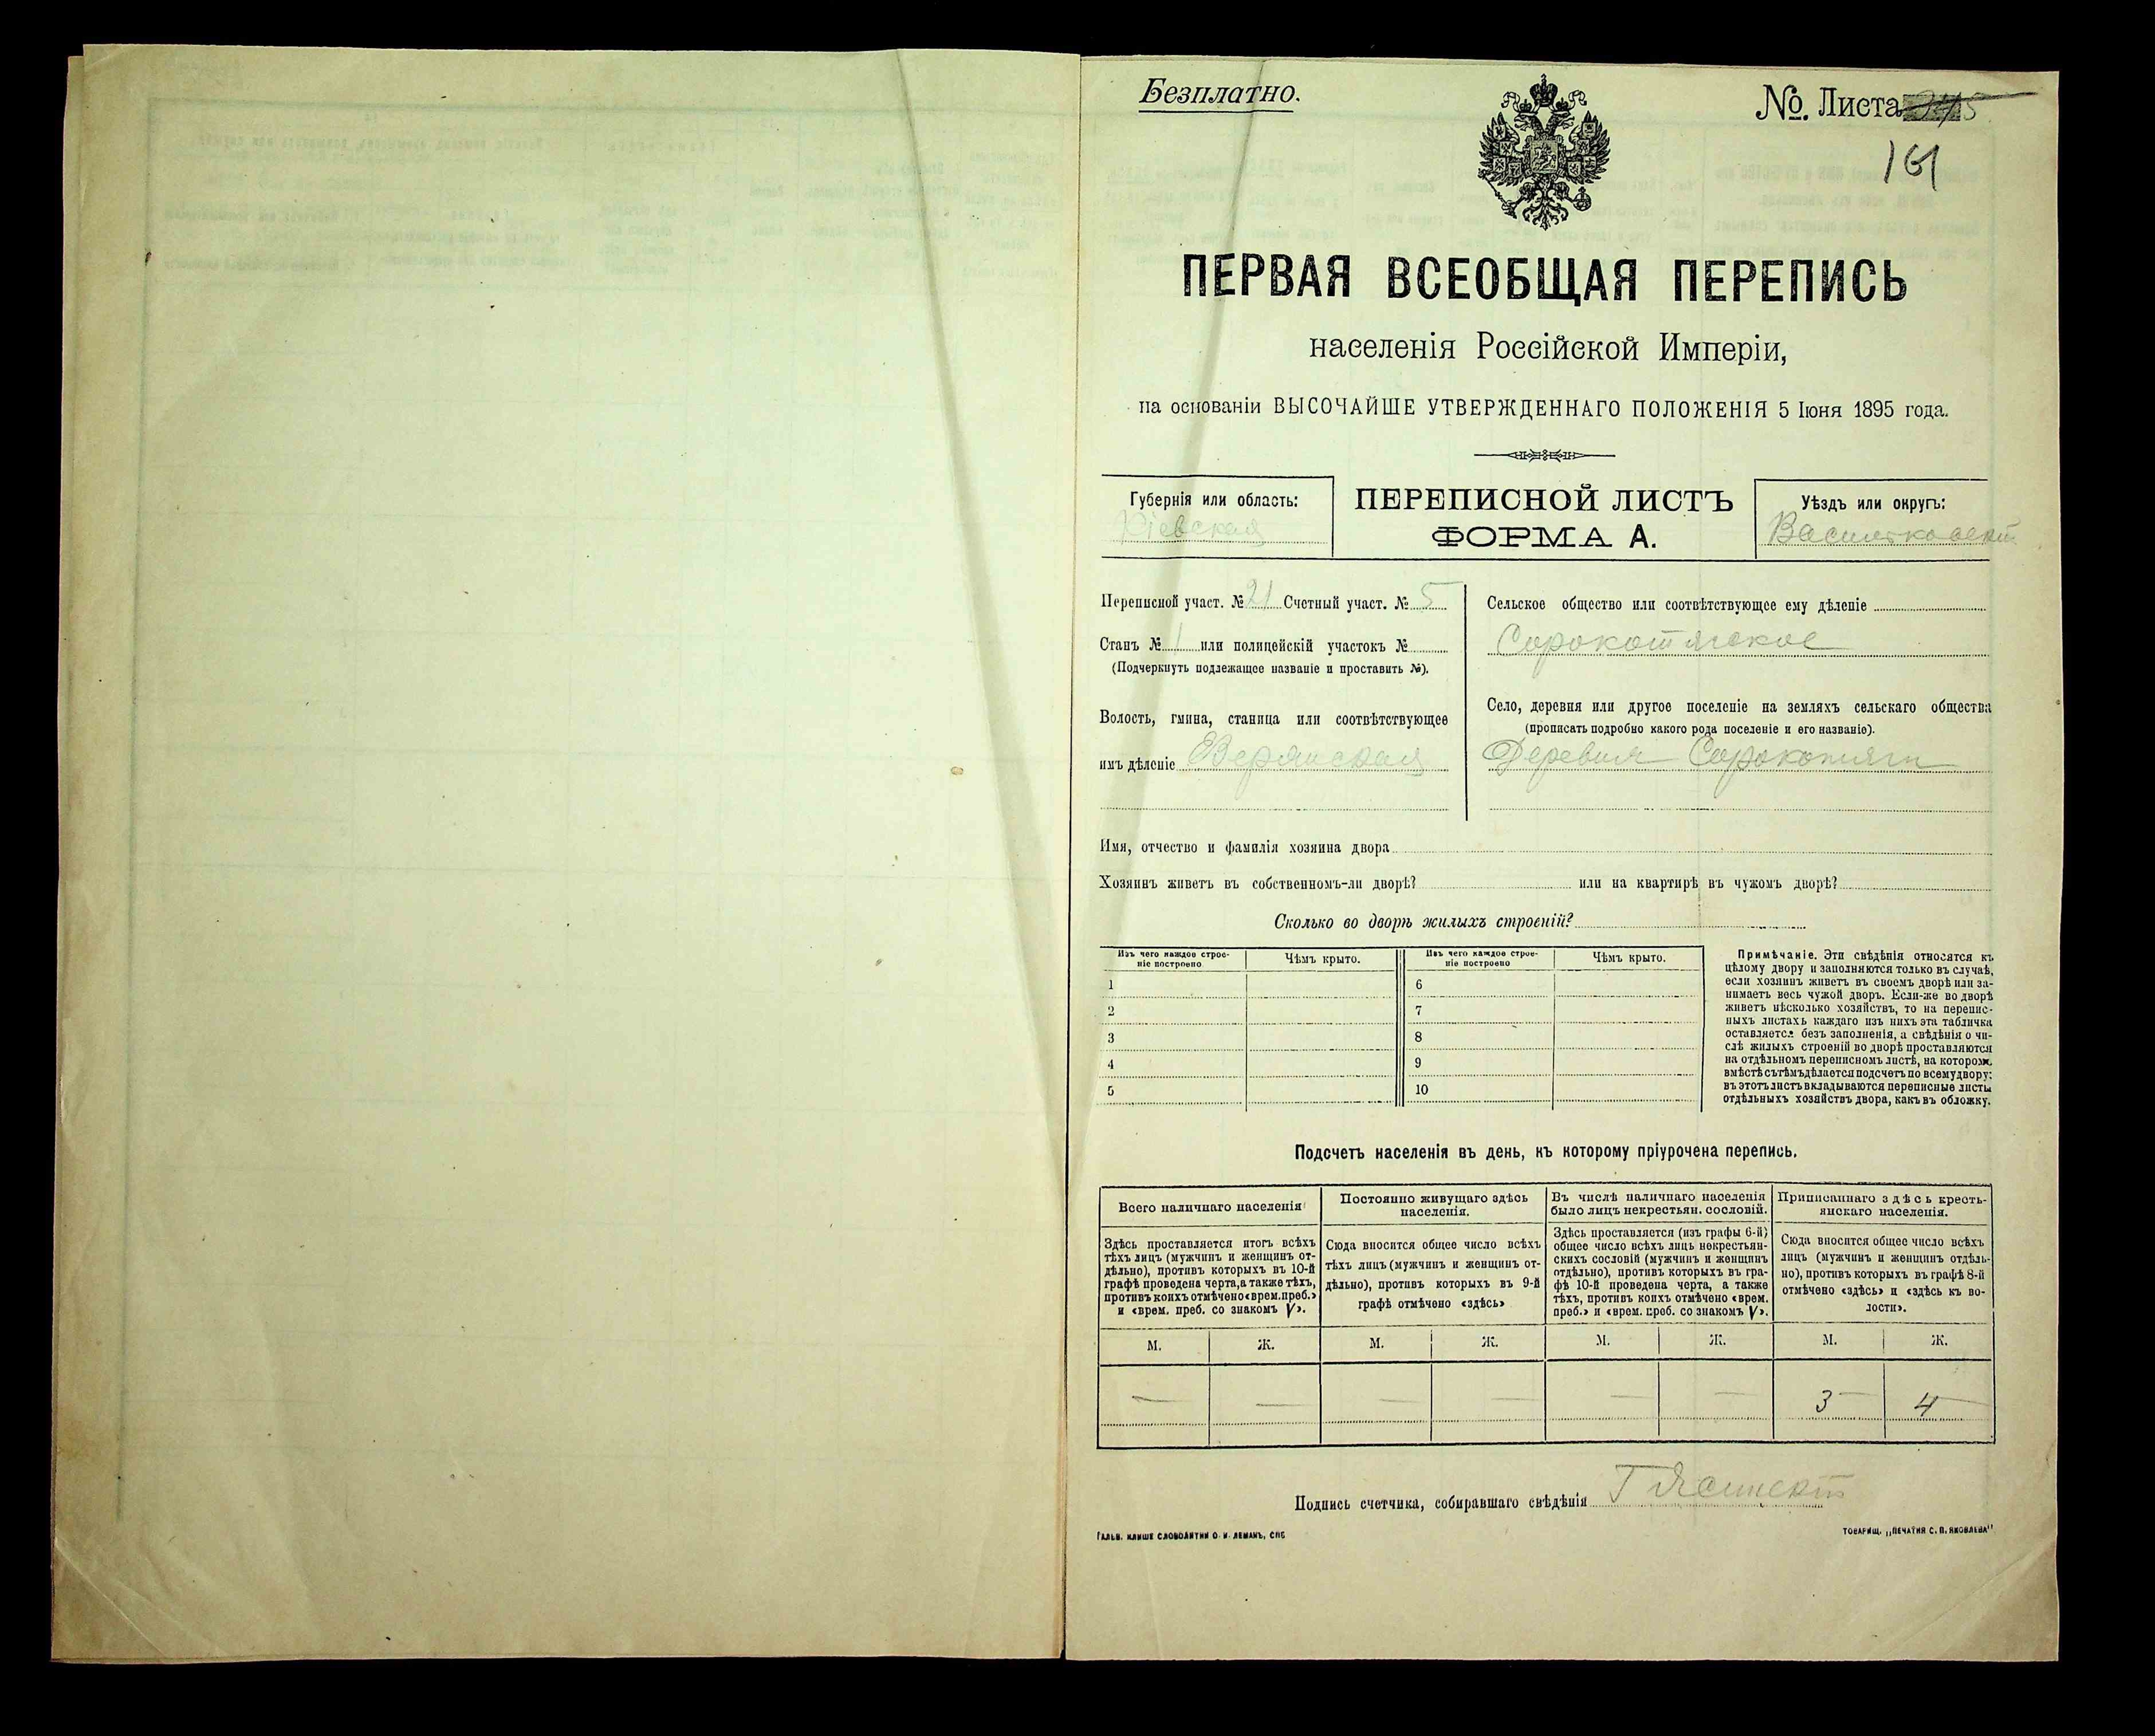 Безплатно.
№. Листа
161
ПЕРВАЯ ВСЕОБЩАЯ ПЕРЕПИСЬ
населенія Россійской Имперіи,
на основаніи ВЫСОЧАЙШЕ УТВЕРЖДЕННАГО ПОЛОЖЕНІЯ 5 Іюня 1895 года.
Губернія или область:
Кіевская
ПЕРЕПИСНОЙ ЛИСТЪ
ФОРМА А.
Уѣздъ или округъ:
Васильковскій
Переписной участ. № 21 Счетный участ. № 5
Станъ № 1 или полицейскій участокъ №
(Подчеркнуть подлежащее названіе и проставить №).
Волость, гмина, станица или соотвѣтствующее
имъ дѣленіе
Сельское общество или соотвѣтствующее ему дѣленіе
Сорокотягское
Село, деревня или другое поселеніе на земляхъ сельскаго общества
(прописать подробно какого рода поселеніе и его названіе).
Деревня Сорокотяги
Имя, отчество и фамилія хозяина двора
Хозяинъ живетъ въ собственномъ-ли дворѣ? или на квартирѣ въ чужомъ дворѣ?
Сколько во дворѣ жилыхъ строеній?
Изъ чего каждое строе-
ніе построено
Чѣмъ крыто.
Изъ чего каждое строе-
ніе построено
Чѣмъ крыто.
1 6
2 7
3 8
4 9
5 10
Примѣчаніе. Эти свѣдѣнія относятся къ
цѣлому двору и заполняются только въ случаѣ,
если хозяинъ живетъ въ своемъ дворѣ или за-
нимаетъ весь чужой дворъ. Если-же во дворѣ
живетъ нѣсколько хозяйствъ, то на перепис-
ныхъ листахъ каждаго изъ нихъ эта табличка
оставляется безъ заполненія, а свѣдѣнія о чи-
слѣ жилыхъ строеній во дворѣ проставляются
на отдѣльномъ переписномъ листѣ, на которомъ
вмѣстѣ съ тѣмъ дѣлается подсчетъ по всему двору;
въ этотъ листъ вкладываются переписные листы
отдѣльныхъ хозяйствъ двора, какъ въ обложку.
Подсчетъ населенія въ день, къ которому пріурочена перепись.
Всего наличнаго населенія
Здѣсь проставляется итогъ всѣхъ
тѣхъ лицъ (мужчинъ и женщинъ от-
дѣльно), противъ которыхъ въ 10-й
графѣ проведена черта, а также тѣхъ,
противъ коихъ отмѣчено «врем. преб.»
и «врем. преб. со знакомъ V».
Постоянно живущаго здѣсь
населенія.
Сюда вносится общее число всѣхъ
тѣхъ лицъ (мужчинъ и женщинъ от-
дѣльно), противъ которыхъ въ 9-й
графѣ отмѣчено «здѣсь»
Въ числѣ наличнаго населенія
было лицъ некрестьян. сословій.
Здѣсь проставляется (изъ графы 6-й)
общее число всѣхъ лицъ некрестьян-
скихъ сословій (мужчинъ и женщинъ
отдѣльно), противъ которыхъ въ гра-
фѣ 10-й проведена черта, а также
тѣхъ, противъ коихъ отмѣчено «врем.
преб.» и «врем. преб. со знакомъ V».
Приписаннаго здѣсь кресть-
янскаго населенія.
Сюда вносится общее число всѣхъ
лицъ (мужчинъ и женщинъ отдѣль-
но), противъ которыхъ въ графѣ 8-й
отмѣчено «здѣсь» и «здѣсь къ во-
лости».
М. Ж. М. Ж. М. Ж. М. Ж.
— — — — — — 3 4
Подпись счетчика, собиравшаго свѣдѣнія
ГАЛЬВ. КЛИШЕ СЛОВОЛИТНИ О. И. ЛЕМАНЪ, СПБ
ТОВАРИЩ. „ПЕЧАТНЯ С. П. ЯКОВЛЕВА"